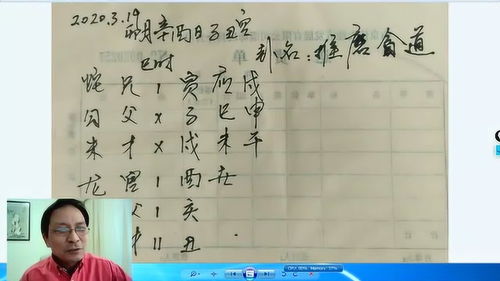 2020.3.19 卯月辛酉日子丑空
巳时
别名:推磨 道
蛇 兄 1 寅 应 戌
勾 父 x 子 巳 申
朱 才 x 戌 未 午
龙 官 1 酉 世
父 1 亥
才 11 丑